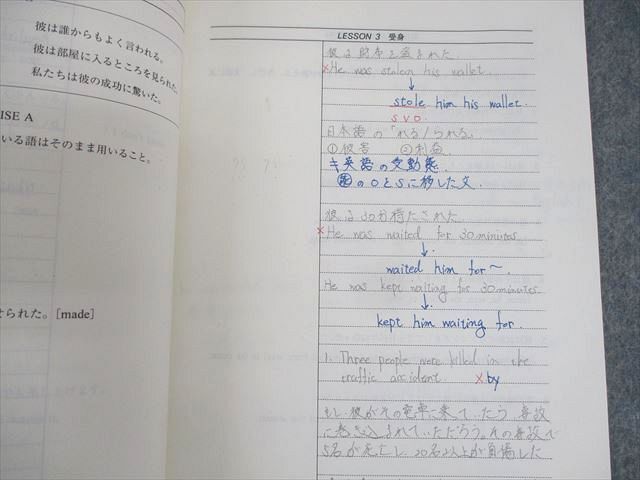 彼は誰からもよく言われる。
彼は部屋に入るところを見られた。
私たちは彼の成功に驚いた。
ISE A
いる語はそのまま用いること。
せられた。[made]
LESSON 3 受身
彼は財布を盗まれた.
×He was stolen his wallet.
↓
stole him his wallet.
S V O.
日本語の「れる/られる」
①被害 ②利益
キ英語の受動態.
能のOをSに移した文.
彼は30分待たされた.
×He was waited for 30 minutes.
↓
waited him for~.
He was kept waiting for 30 minutes.
↓
kept him waiting for.
1. Three people were killed in the
traffic accident ×by
もし彼がその電車に乗って..たら 事故
に巻き込まれて..ただろう。その事故で
5名が死亡し、20名以上が負傷した